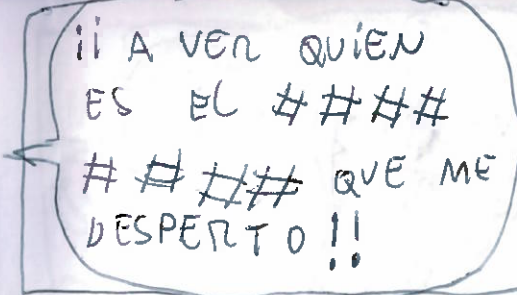 ¡¡ A VER QUIEN
ES EL ####
#### QUE ME
DESPERTO!!